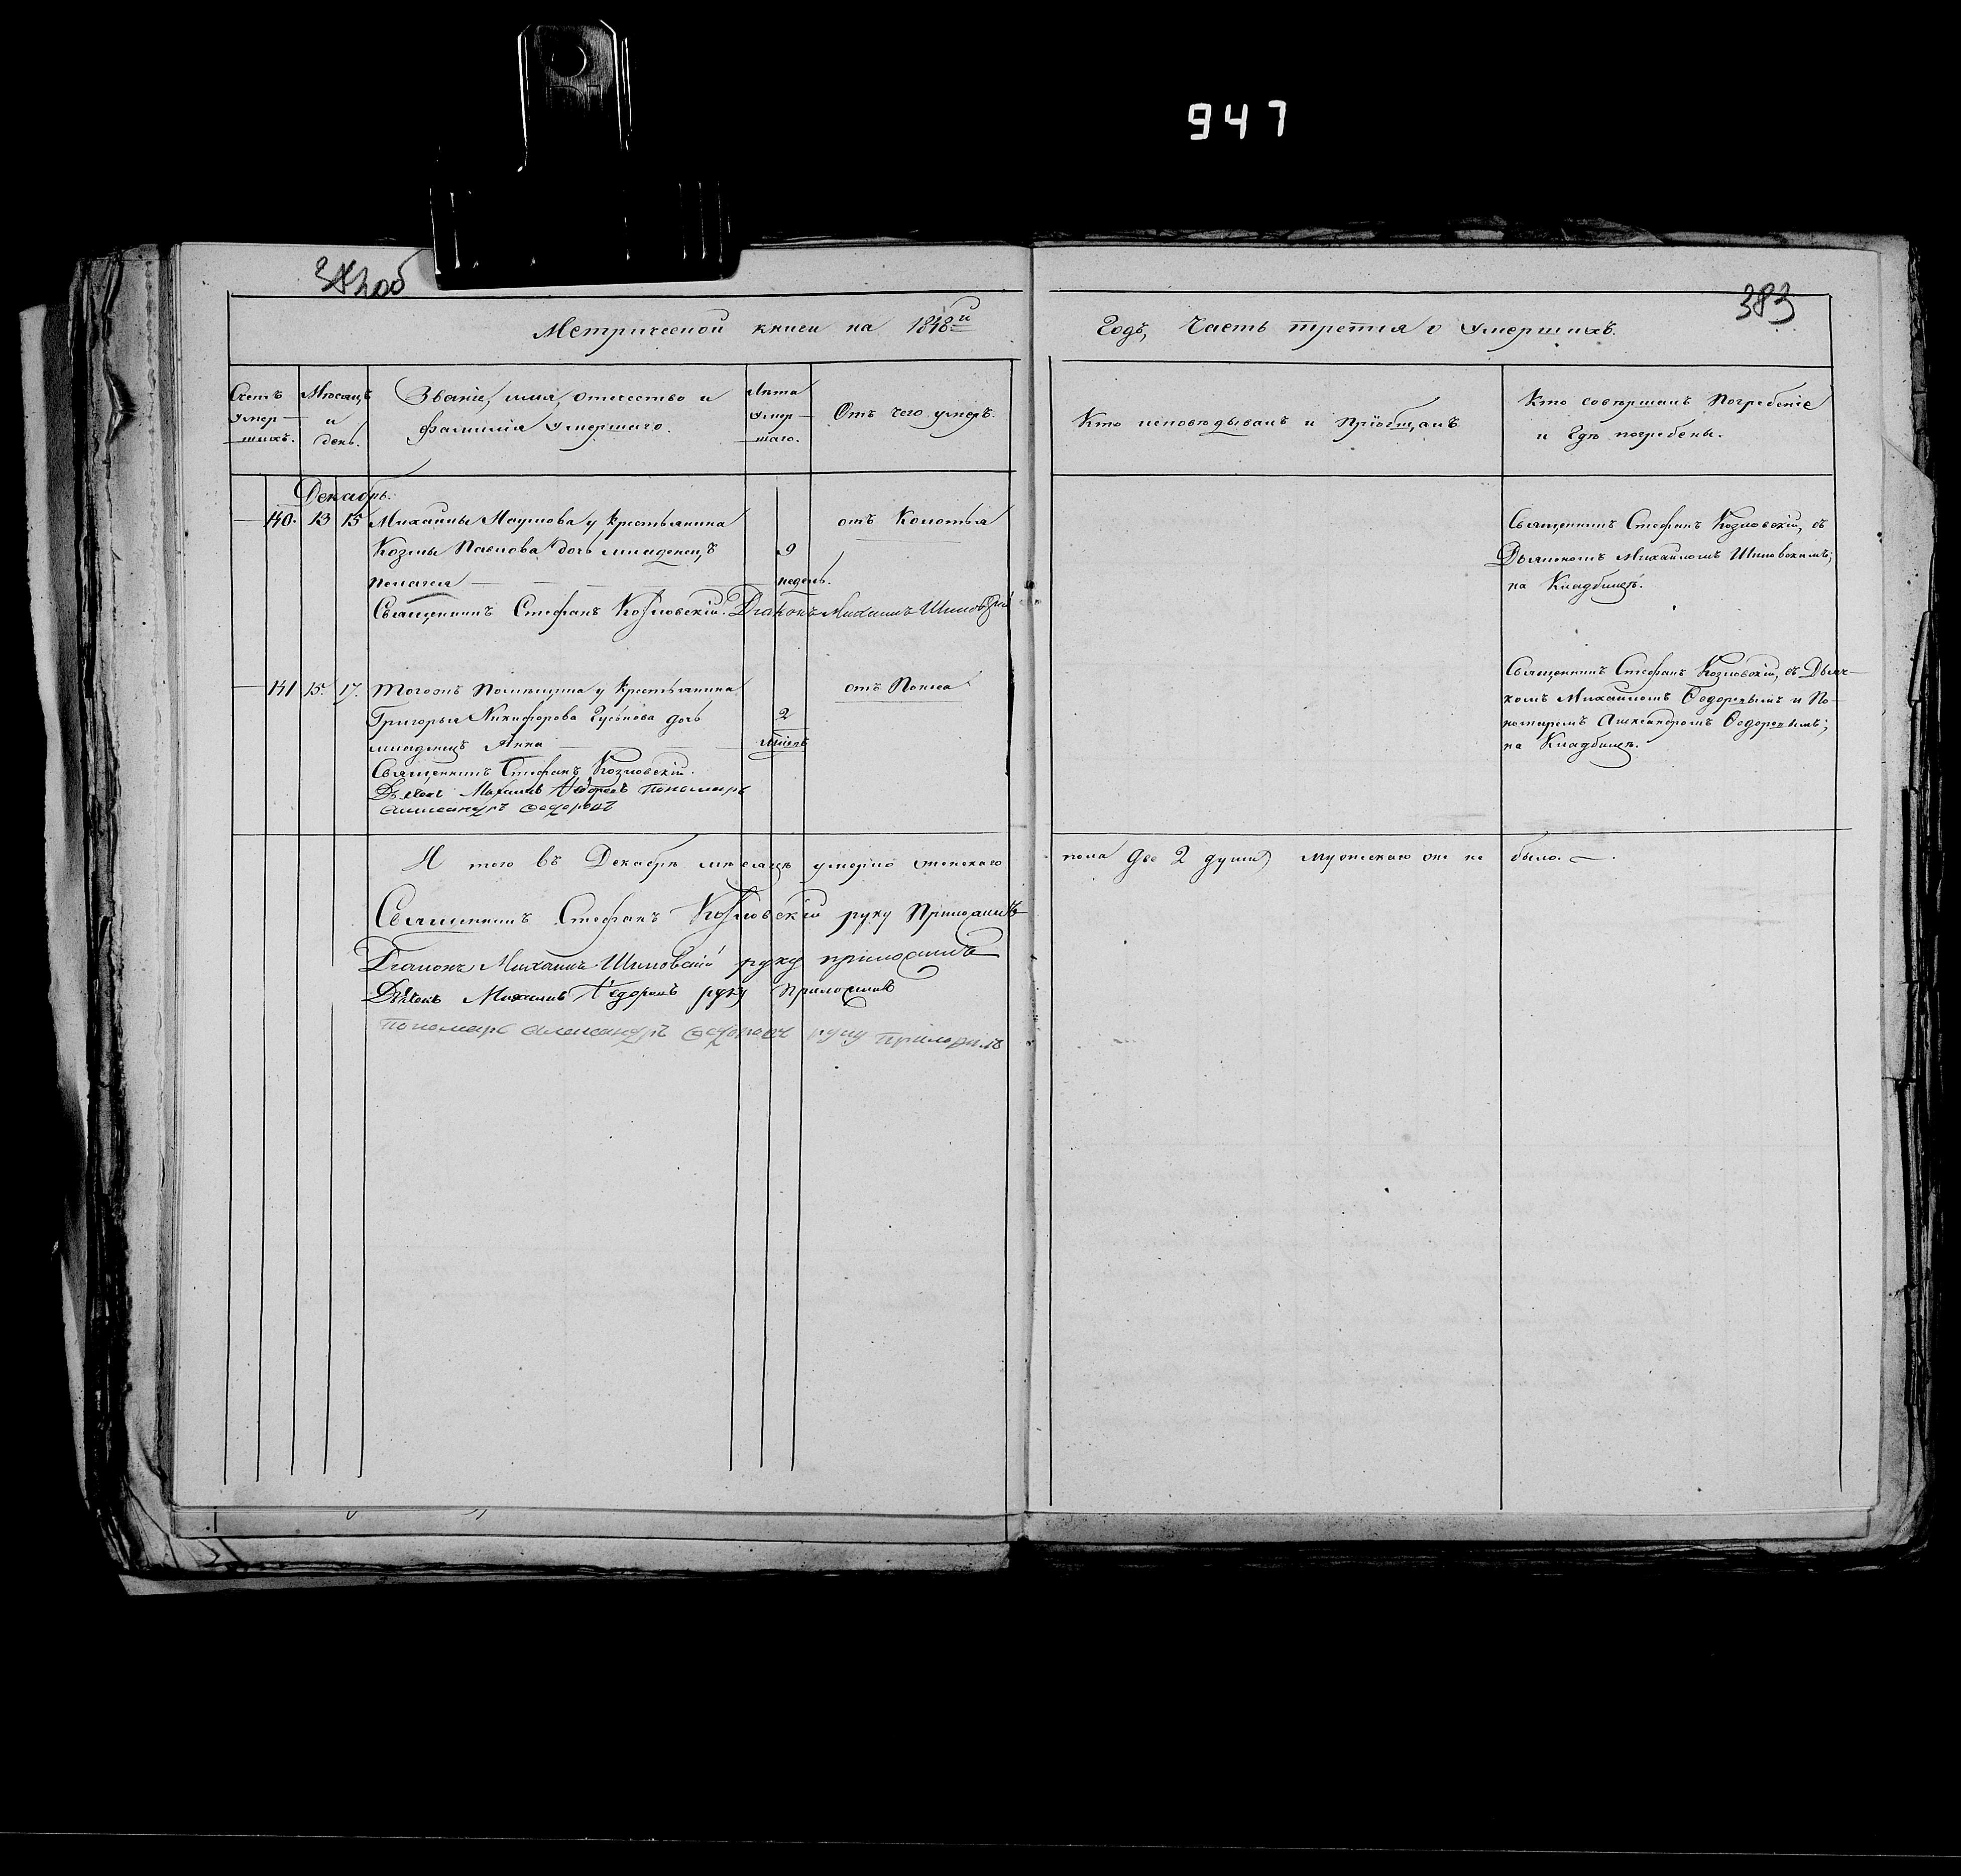 947
382об
383
Метрической книги на 1848й
Годъ, Часть третья о умершихъ.
Счетъ умер-шихъ.
Мѣсяцъ и день.
Званіе, имя, отчество и фамилія умершаго.
Лѣта умер-шаго.
Отъ чего умеръ.
Кто исповѣдывалъ и Пріобщалъ
Кто совершалъ Погребеніе и Гдѣ погребены.
Декабрь.
140. 13 15 Михаилы Наумова у крестьянина отъ Колотья
Козмы Павлова дочь младенецъ 9
Пелагея недель.
Священникъ Стефанъ Козловскій. Діаконъ Михаилъ Шиловскій
Священникъ Стефанъ Козловскій, съ
Дьякономъ Михаиломъ Шиловскимъ;
на Кладбищѣ.
141 15. 17. Тогожъ Помѣщика у крестьянина отъ Поноса
Григорья Никифорова Гусѣнова дочь 2
младенецъ Анна мѣсец
Священникъ Стефанъ Козловскій.
Дьячекъ Михаилъ Федоровъ Пономарь
Александръ Федоровъ
Священникъ Стефанъ Козловскій, съ Дьяч-
комъ Михаиломъ Ѳедоровымъ и По-
номаремъ Александромъ Ѳедоровымъ;
на Кладбищѣ.
И того въ Декабрѣ мѣсяцѣ умерло женскаго пола две 2 души, мужскаго же не было.
Священникъ Стефанъ Козловскій руку Приложилъ
Діаконъ Михаилъ Шиловскій руку приложилъ
Дьячекъ Михаилъ Федоровъ руку Приложилъ
Пономарь Александръ Федоровъ руку Приложилъ